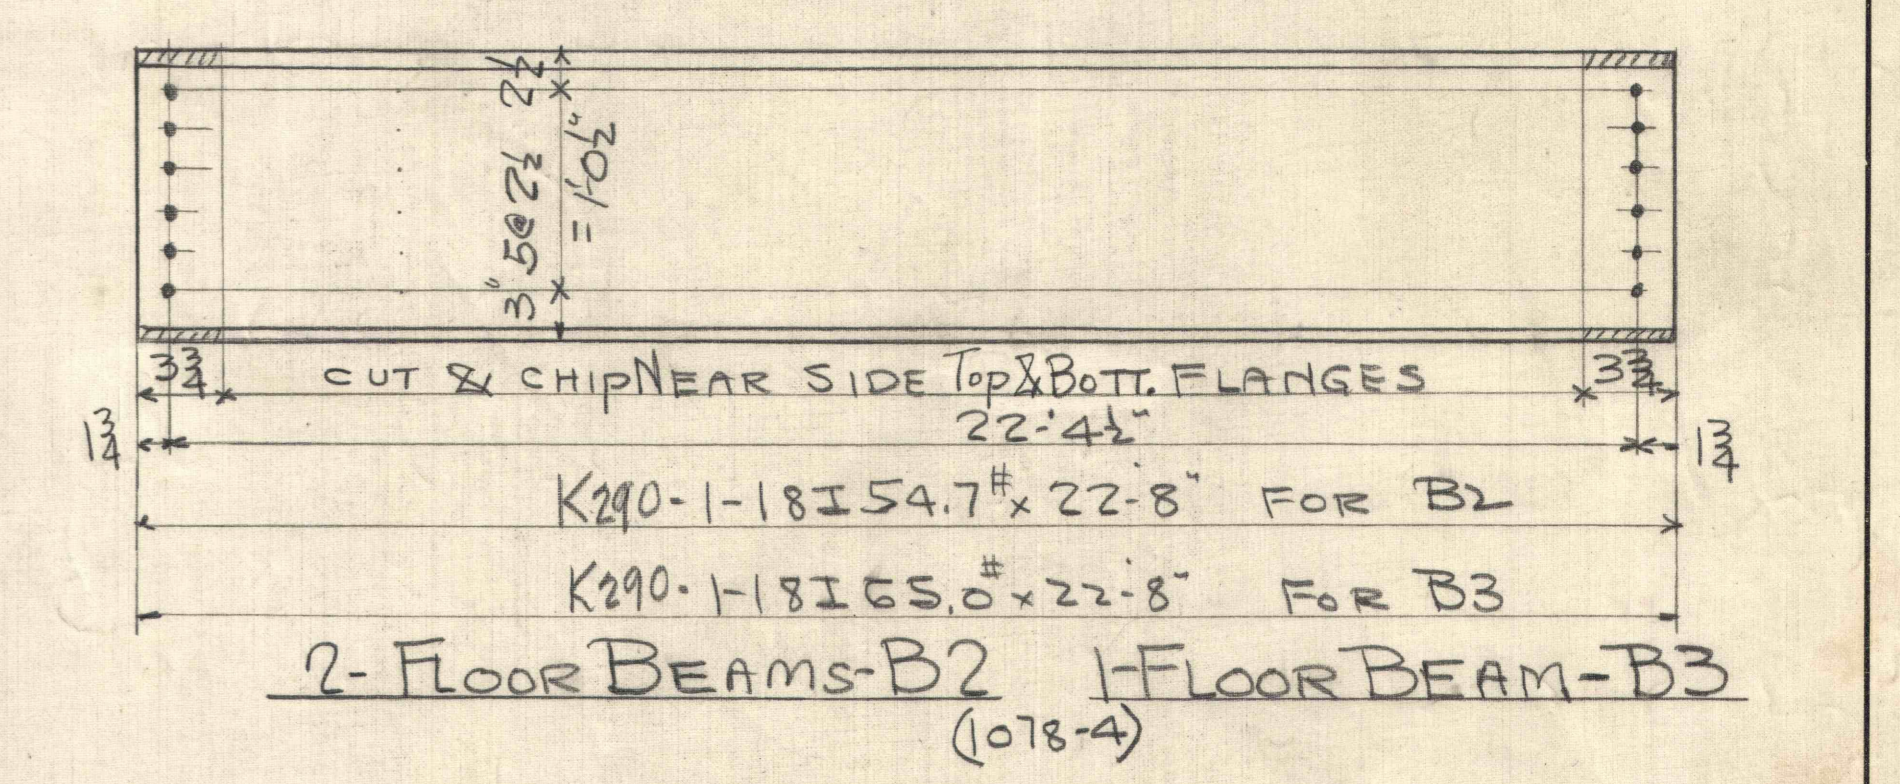 2½
3" 5@2½
= 1'-0½"
3¾ CUT & CHIP NEAR SIDE TOP & BOTT. FLANGES 3¾
1¾ 22'-4½" 1¾
K290-1-18I54.7# x 22'-8" FOR B2
K290-1-18I65.0# x 22'-8" FOR B3
2-FLOOR BEAMS-B2 1-FLOOR BEAM-B3
(1078-4)